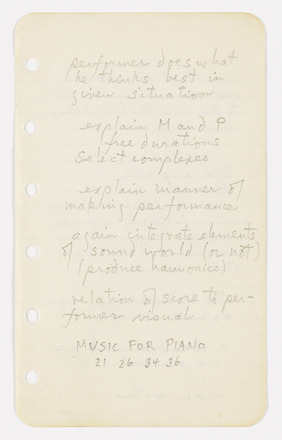 performer does what
he thinks best in
given situation.
explain M and P
free durations
Select complexes
explain manner of
making performance
again integrate elements
of sound world (or not)
(produce harmonics)
relation of score to per-
former visual
MUSIC FOR PIANO
21 26 34 36